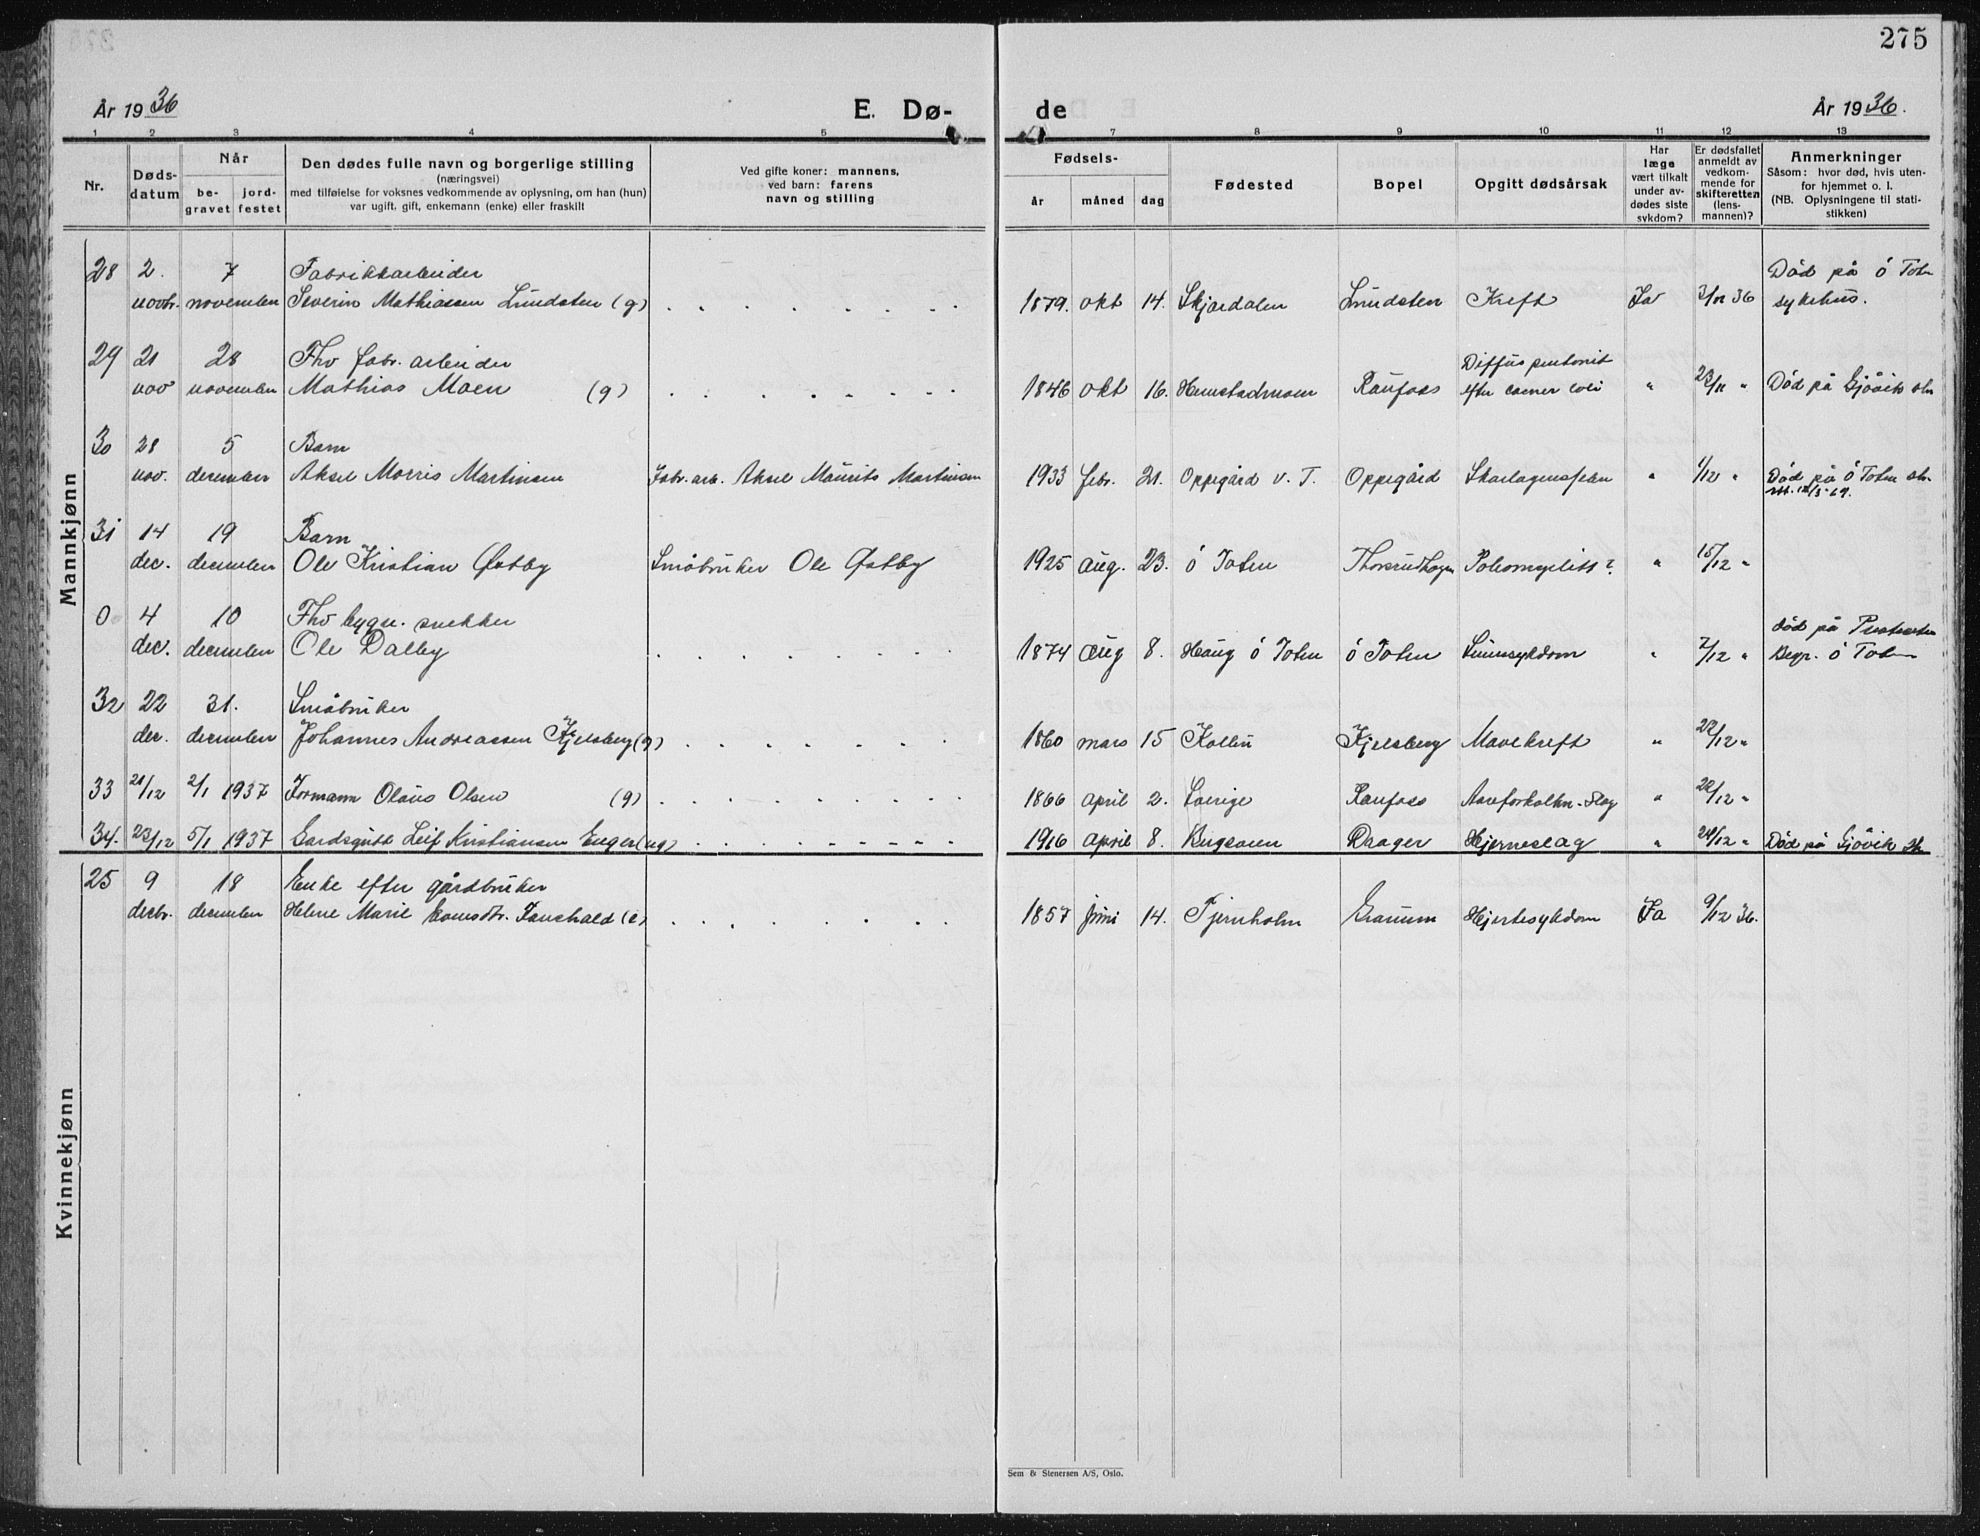 275
År 1936
E. Dø-
de
År 1936.
1 2 3 4 5
7 8 9 10 11 12 13
Nr.
Døds-
datum
Når
be-
gravet
jord-
festet
Den dødes fulle navn og borgerlige stilling
(næringsvei)
med tilføielse for voksnes vedkommende av oplysning, om han (hun)
var ugift, gift, enkemann (enke) eller fraskilt
Ved gifte koner: mannens,
ved barn: farens
navn og stilling
Fødsels-
år
måned
dag
Fødested
Bopel
Opgitt dødsårsak
Har
læge
vært tilkalt
under av-
dødes siste
sykdom?
Er dødsfallet
anmeldt av
vedkom-
mende for
skifteretten
(lens-
mannen)?
Anmerkninger
Såsom: hvor død, hvis uten-
for hjemmet o. l.
(NB. Oplysningene til stati-
stikken)
Mannkjønn
28 2. 7 Fabrikkarbeider Død på ö Toten
novbr. november Severin Mathiassen Lundsten (g) 1879. okt 14. Skjærdalen Lundsten Kreft Ja 3/11 36 sykehus.
29 21 28 Fhv fabr. arbeider Diffus peritonit
nov november Mathias Moen (g) 1846 okt 16. Hunstadmoen Raufoss efter cancer coli " 23/11 " Død på Gjøvik
30 28 5 Barn
nov. december Aksel Morris Martinsen Fabr. arb. Aksel Maurits Martinsen 1933 febr. 21. Oppegård v. T. Oppegård Skarlagensfeber " 1/12 " Død på ö Toten
31 14 19 Barn
dec. december Ole Kristian Østby Småbruker Ole Østby 1925 aug. 23. ö Toten Thorsrudhagen Poliomyelitt? " 15/12 "
0 4 10 Fhv bygn. snekker død på
dec. december Ole Dalby 1874 aug 8. Haug ö Toten ö Toten Sinnsykdom " 7/12 " Begr. ö Toten
32 22 31. Småbruker
dec. december Johannes Andreassen Kjelsberg (g) 1860 mars 15 Kolbu Kjelsberg Mavekreft " 22/12 "
33 21/12 2/1 1937 Formann Olaus Olsen (g) 1866 april 2. Sverige Raufoss Aareforkalkn. Slag " 22/12 "
34. 23/12 5/1 1937 Gardsgutt Leif Kristiansen Enger (ug) 1916 april 8. Daager Hjerneslag " 24/12 " Død på Gjövik
Kvinnekjønn
25 9 18 Enke efter gårdbruker
decbr. december Helene Marie Fauchald (e) 1857 juni 14. Tjernholm Granum Hjertesykdom Ja 9/12 36.
Sem & Stenersen A/S, Oslo.